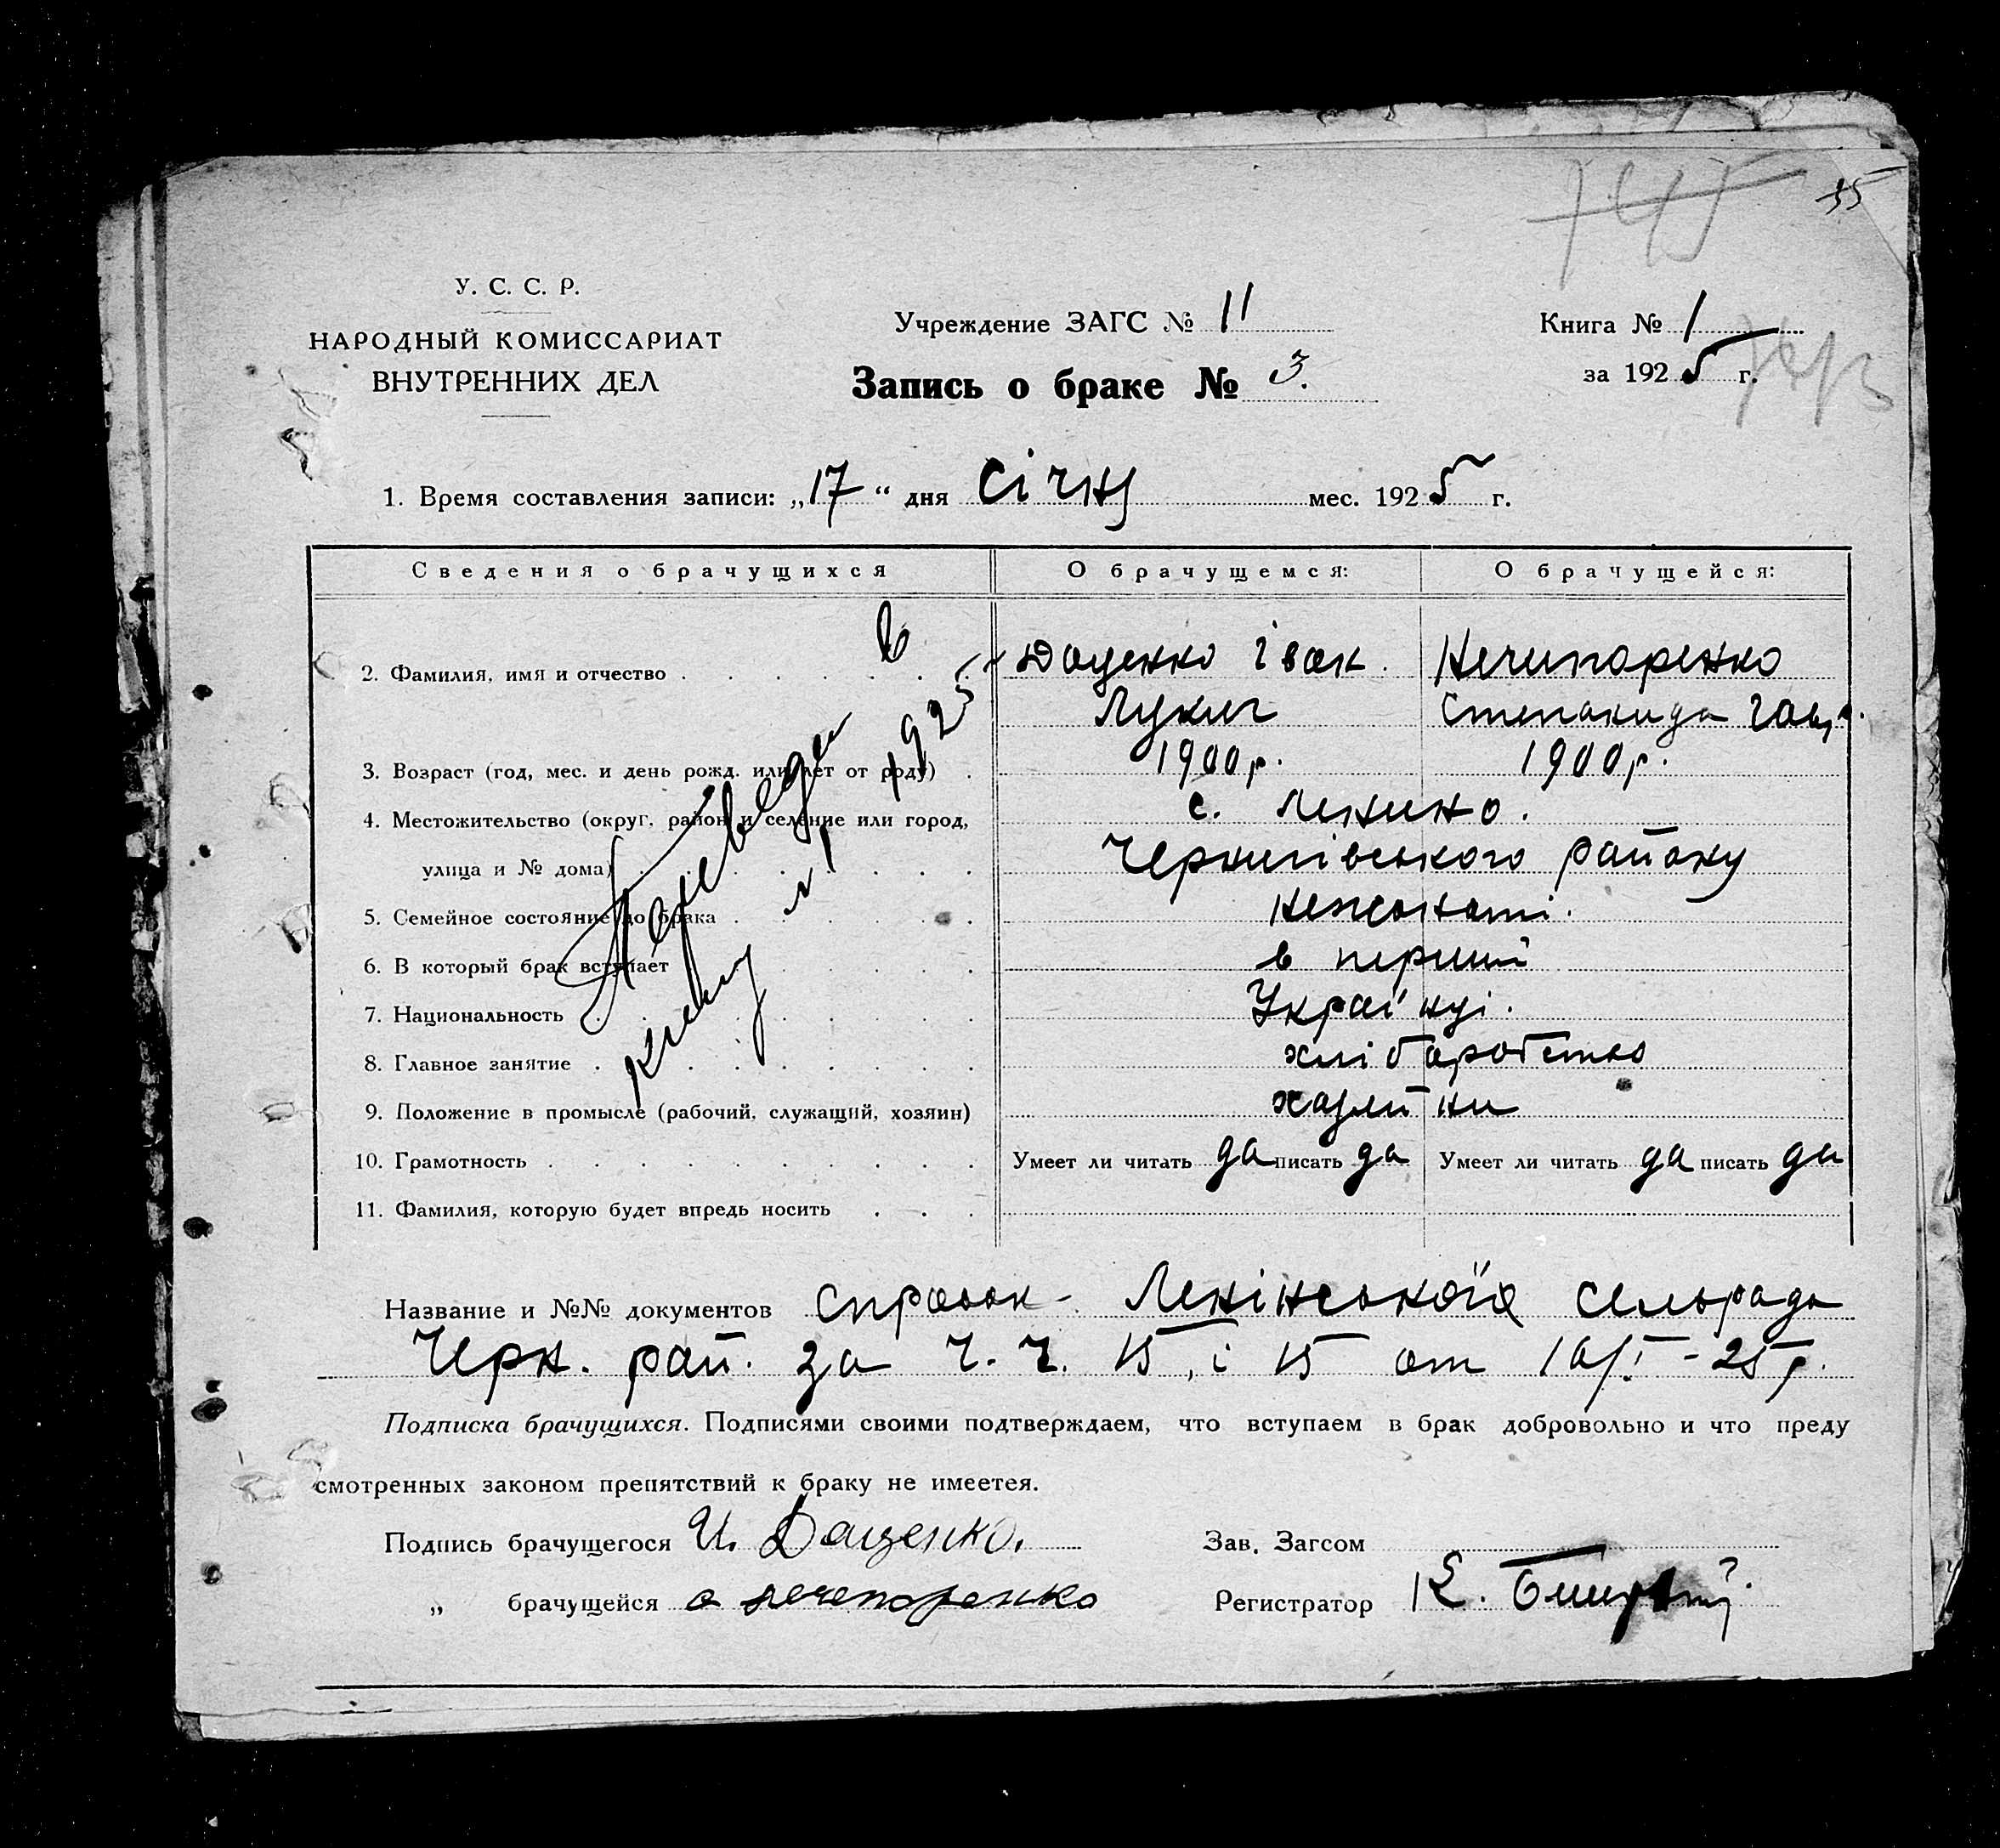 35
У. С. С. Р.
НАРОДНЫЙ КОМИССАРИАТ
ВНУТРЕННИХ ДЕЛ
Учреждение ЗАГС № 11
Запись о браке № 3.
Книга № 1
за 1925 г.
1. Время составления записи: „17“ дня січня мес. 1925 г.
Сведения о брачущихся О брачущемся: О брачущейся:
2. Фамилия, имя и отчество Даценко Іван Нечипоренко
Лукич Степанида
3. Возраст (год, мес. и день рожд. или лет от роду) 1900 р. 1900 р.
4. Местожительство (округ. район и селение или город, с. Ленино.
улица и № дома) Чернигівського району
5. Семейное состояние до брака нежонаті.
6. В который брак вступает в перший
7. Национальность Украінці.
8. Главное занятие хліборобство
9. Положение в промысле (рабочий, служащий, хозяин) хазяйни
10. Грамотность Умеет ли читать да писать да Умеет ли читать да писать да
11. Фамилия, которую будет впредь носить
в
книгу 1925
Название и №№ документов Ленінської сельради
Черн. рай. за ч.ч. 15, і 15 от 16/I-25 р.
Подписка брачущихся. Подписями своими подтверждаем, что вступаем в брак добровольно и что преду
смотренных законом препятствий к браку не имеетея.
Подпись брачущегося И. Даценко.
„ брачущейся с нечепоренко
Зав. Загсом
Регистратор